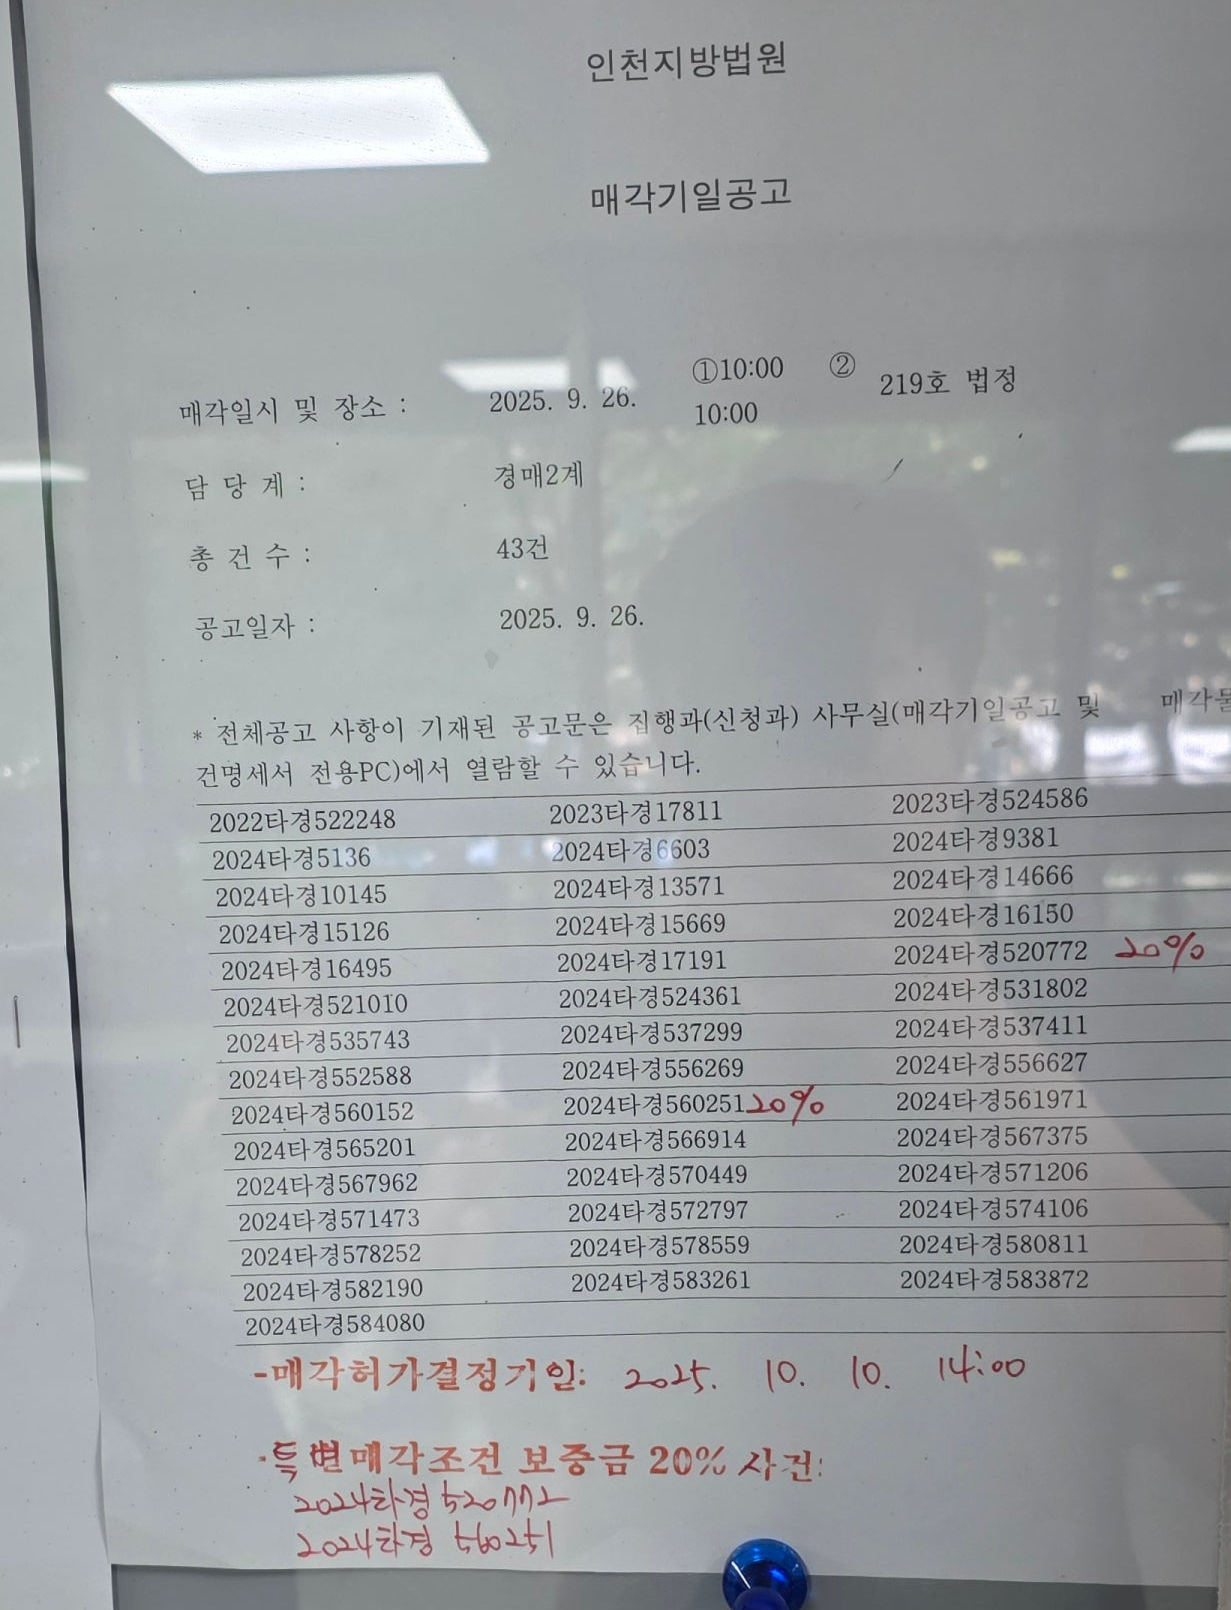 인천지방법원
매각기일공고
매각일시 및 장소 : 2025. 9. 26. ①10:00 ② 219호 법정
10:00
담 당 계 : 경매2계
총 건 수 : 43건
공고일자 : 2025. 9. 26.
* 전체공고 사항이 기재된 공고문은 집행과(신청과) 사무실(매각기일공고 및 매각물
건명세서 전용PC)에서 열람할 수 있습니다.
2022타경522248 2023타경17811 2023타경524586
2024타경5136 2024타경6603 2024타경9381
2024타경10145 2024타경13571 2024타경14666
2024타경15126 2024타경15669 2024타경16150
2024타경16495 2024타경17191 2024타경520772 20%
2024타경521010 2024타경524361 2024타경531802
2024타경535743 2024타경537299 2024타경537411
2024타경552588 2024타경556269 2024타경556627
2024타경560152 2024타경560251 20% 2024타경561971
2024타경565201 2024타경566914 2024타경567375
2024타경567962 2024타경570449 2024타경571206
2024타경571473 2024타경572797 2024타경574106
2024타경578252 2024타경578559 2024타경580811
2024타경582190 2024타경583261 2024타경583872
2024타경584080
-매각허가결정기일: 2025. 10. 10. 14:00
·특별매각조건 보증금 20% 사건:
2024타경 520772
2024타경 560251